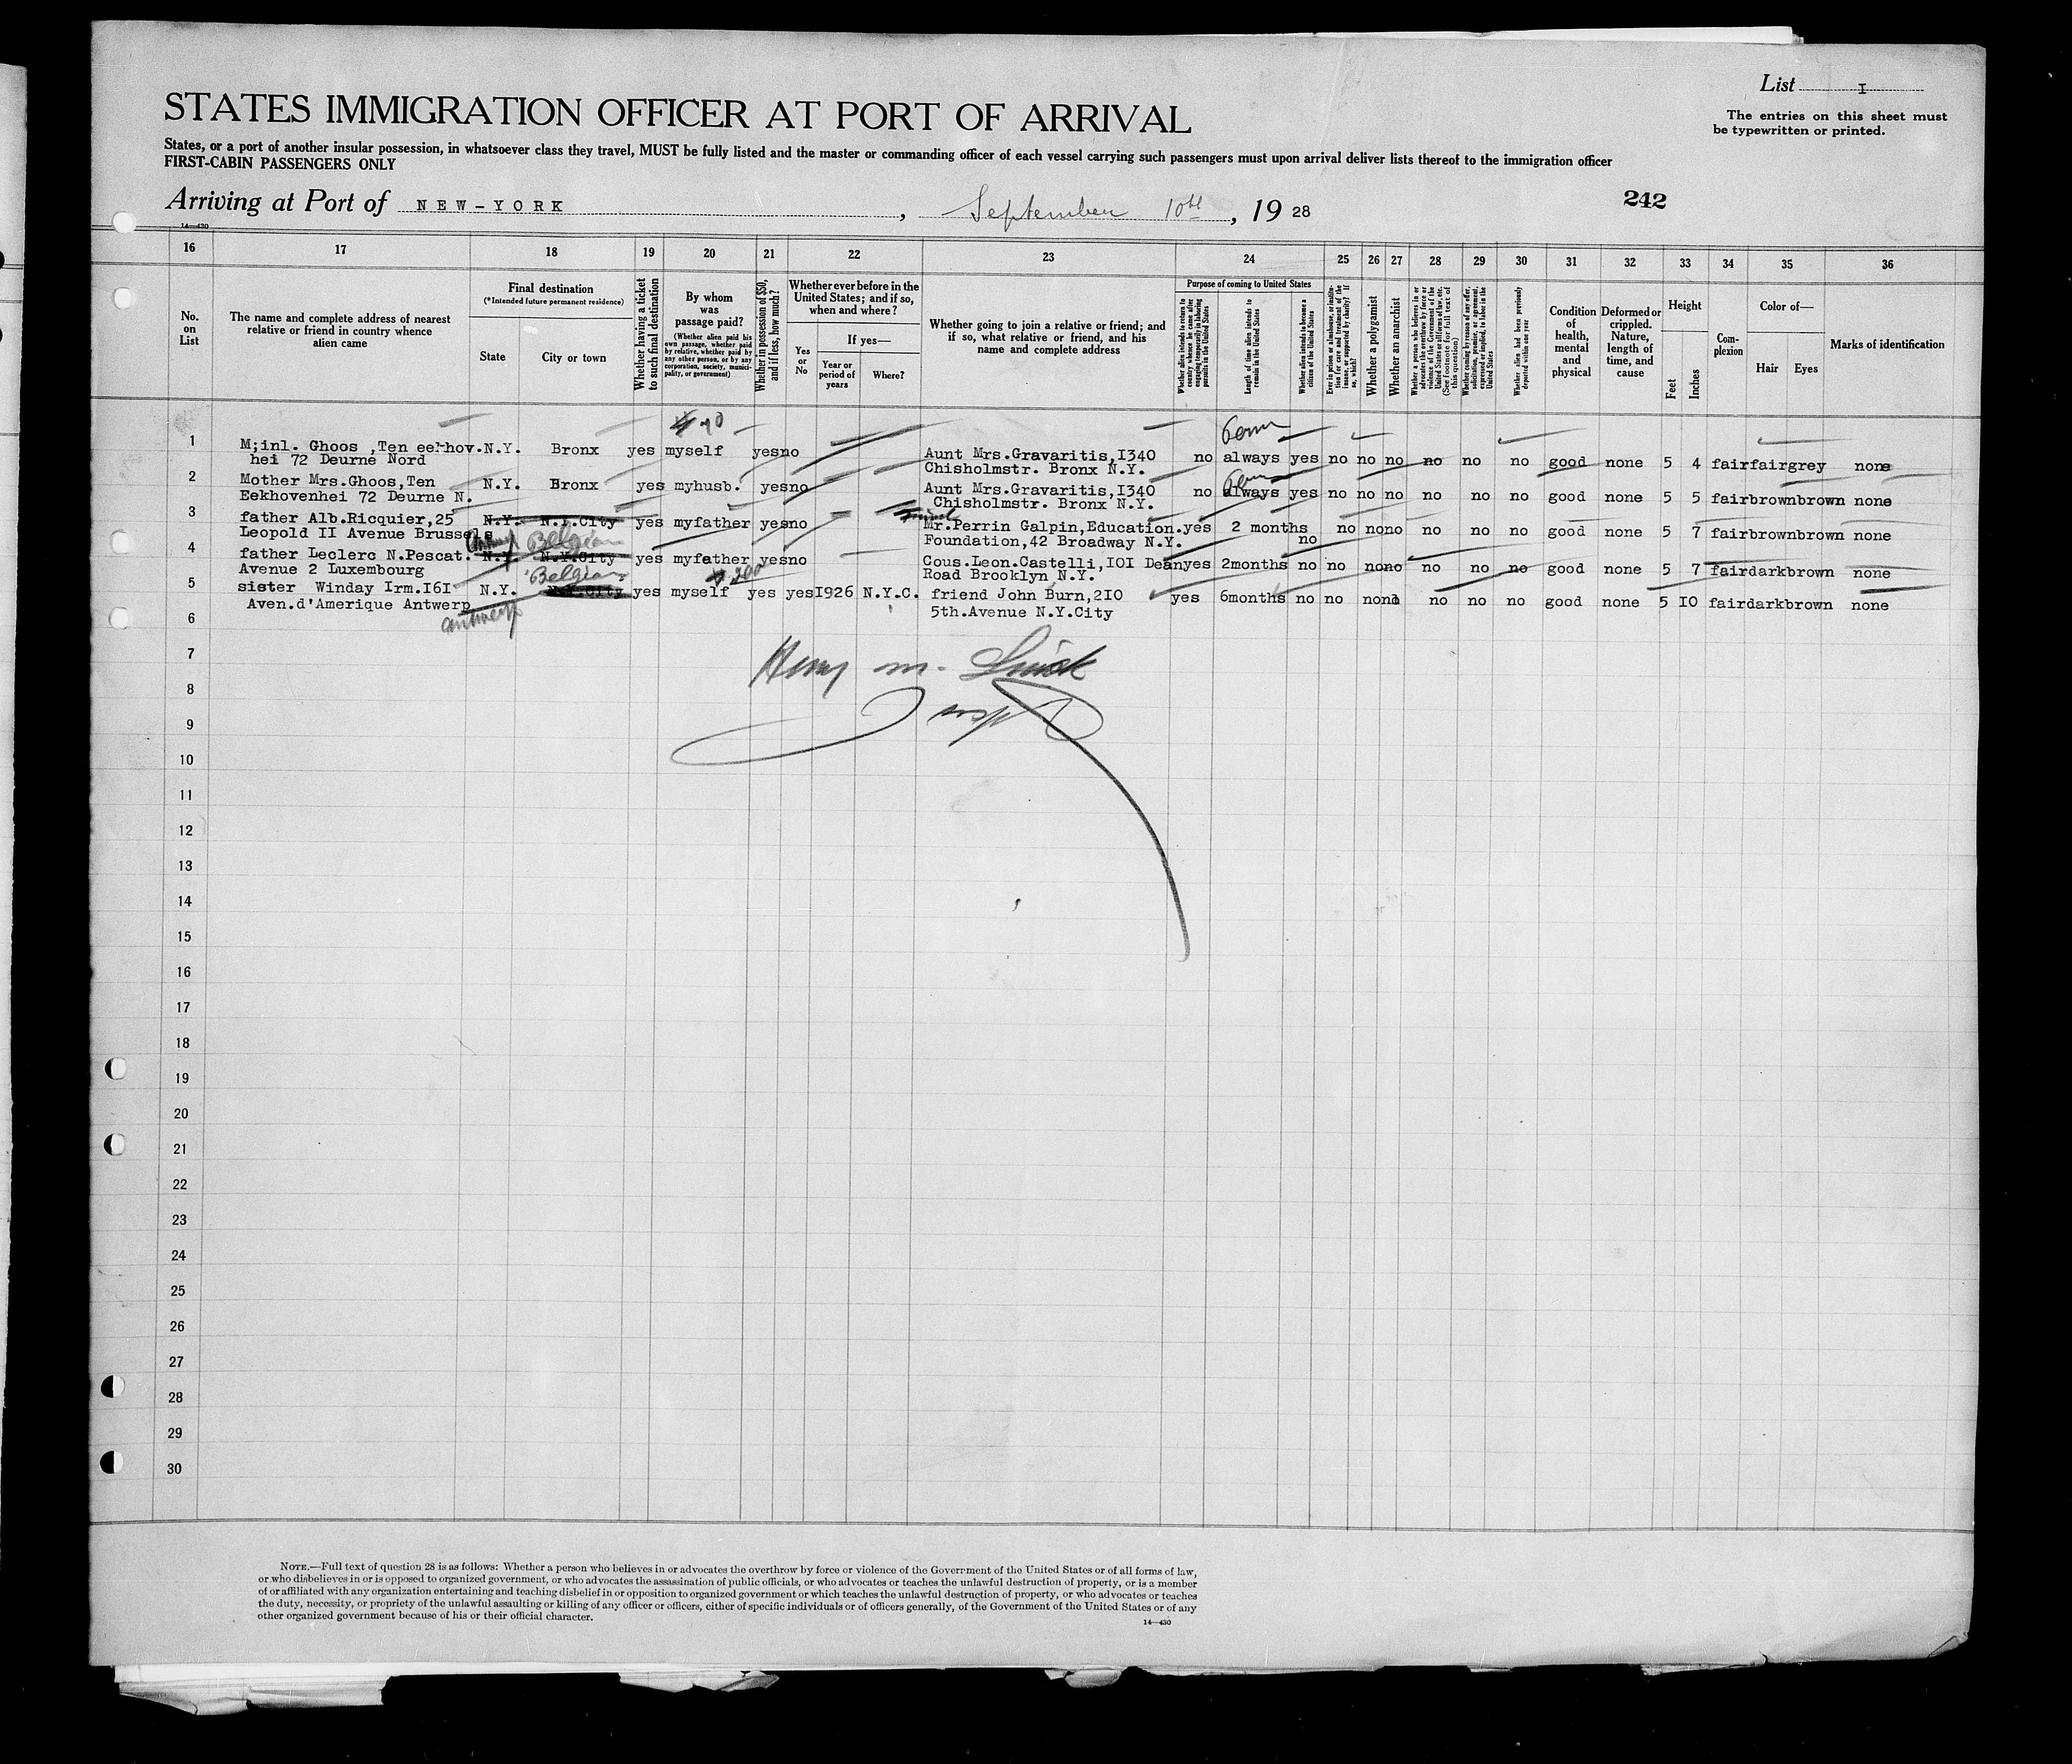 List I
The entries on this sheet must
be typewritten or printed.
STATES IMMIGRATION OFFICER AT PORT OF ARRIVAL
States, or a port of another insular possession, in whatsoever class they travel, MUST be fully listed and the master or commanding officer of each vessel carrying such passengers must upon arrival deliver lists thereof to the immigration officer
FIRST-CABIN PASSENGERS ONLY
Arriving at Port of NEW-YORK, September 10th, 19 28
242
14—430
16 17 18 19 20 21 22 23 24 25 26 27 28 29 30 31 32 33 34 35 36
No.
on
List
The name and complete address of nearest
relative or friend in country whence
alien came
Final destination
(*Intended future permanent residence)
State
City or town
Whether having a ticket
to such final destination
By whom
was
passage paid?
(Whether alien paid his
own passage, whether paid
by relative, whether paid by
any other person, or by any
corporation, society, munici-
pality, or government)
Whether in possession of $50,
and if less, how much?
Whether ever before in the
United States; and if so,
when and where?
Yes
or
No
If yes—
Year or
period of
years
Where?
Whether going to join a relative or friend; and
if so, what relative or friend, and his
name and complete address
Purpose of coming to United States
Whether alien intends to return to
country whence he came after
engaging temporarily in laboring
pursuits in the United States
Length of time alien intends to
remain in the United States
Whether alien intends to become a
citizen of the United States
Ever in prison or almshouse, or institu-
tion for care and treatment of the
insane, or supported by charity? If
so, which?
Whether a polygamist
Whether an anarchist
Whether a person who believes in or
advocates the overthrow by force or
violence of the Government of the
United States or all forms of law, etc.
(See footnote for full text of
this question)
Whether coming by reason of any offer,
solicitation, promise, or agreement,
expressed or implied, to labor in the
United States
Whether alien had been previously
deported within one year
Condition
of
health,
mental
and
physical
Deformed or
crippled.
Nature,
length of
time, and
cause
Height
Feet
Inches
Com-
plexion
Color of—
Hair
Eyes
Marks of identification
1 M;inl. Ghoos ,Ten eekhov. N.Y. Bronx yes myself yes no Aunt Mrs.Gravaritis,I340 no always yes no no no no no no good none 5 4 fair fair grey none
hei 72 Deurne Nord Chisholmstr. Bronx N.Y.
2 Mother Mrs.Ghoos,Ten N.Y. Bronx yes myhusb. yes no Aunt Mrs.Gravaritis,I340 no always yes no no no no no no good none 5 5 fair brown brown none
Eekhovenhei 72 Deurne N. Chisholmstr. Bronx N.Y.
3 father Alb.Ricquier,25 N.Y. N.Y.City yes myfather yes no Mr.Perrin Galpin,Education. yes 2 months no no no no no no no good none 5 7 fair brown brown none
Leopold II Avenue Brussels Belgian Foundation,42 Broadway N.Y.
4 father Leclerc N.Pescat. N.Y N.Y.City yes myfather yes no Cous.Leon.Castelli,IOI Dean yes 2months no no no no no no no good none 5 7 fair dark brown none
Avenue 2 Luxembourg Belgian Road Brooklyn N.Y.
5 sister Winday Irm.I6I N.Y. N.Y.City yes myself yes yes I926 N.Y.C. friend John Burn,2I0 yes 6months no no no no no no no good none 5 IO fair dark brown none
Aven.d'Amerique Antwerp Antwerp 5th.Avenue N.Y.City
6
7
8
9
10
11
12
13
14
15
16
17
18
19
20
21
22
23
24
25
26
27
28
29
30
NOTE.—Full text of question 28 is as follows: Whether a person who believes in or advocates the overthrow by force or violence of the Government of the United States or of all forms of law,
or who disbelieves in or is opposed to organized government, or who advocates the assassination of public officials, or who advocates or teaches the unlawful destruction of property, or is a member
of or affiliated with any organization entertaining and teaching disbelief in or opposition to organized government or which teaches the unlawful destruction of property, or who advocates or teaches
the duty, necessity, or propriety of the unlawful assaulting or killing of any officer or officers, either of specific individuals or of officers generally, of the Government of the United States or of any
other organized government because of his or their official character.
14—430